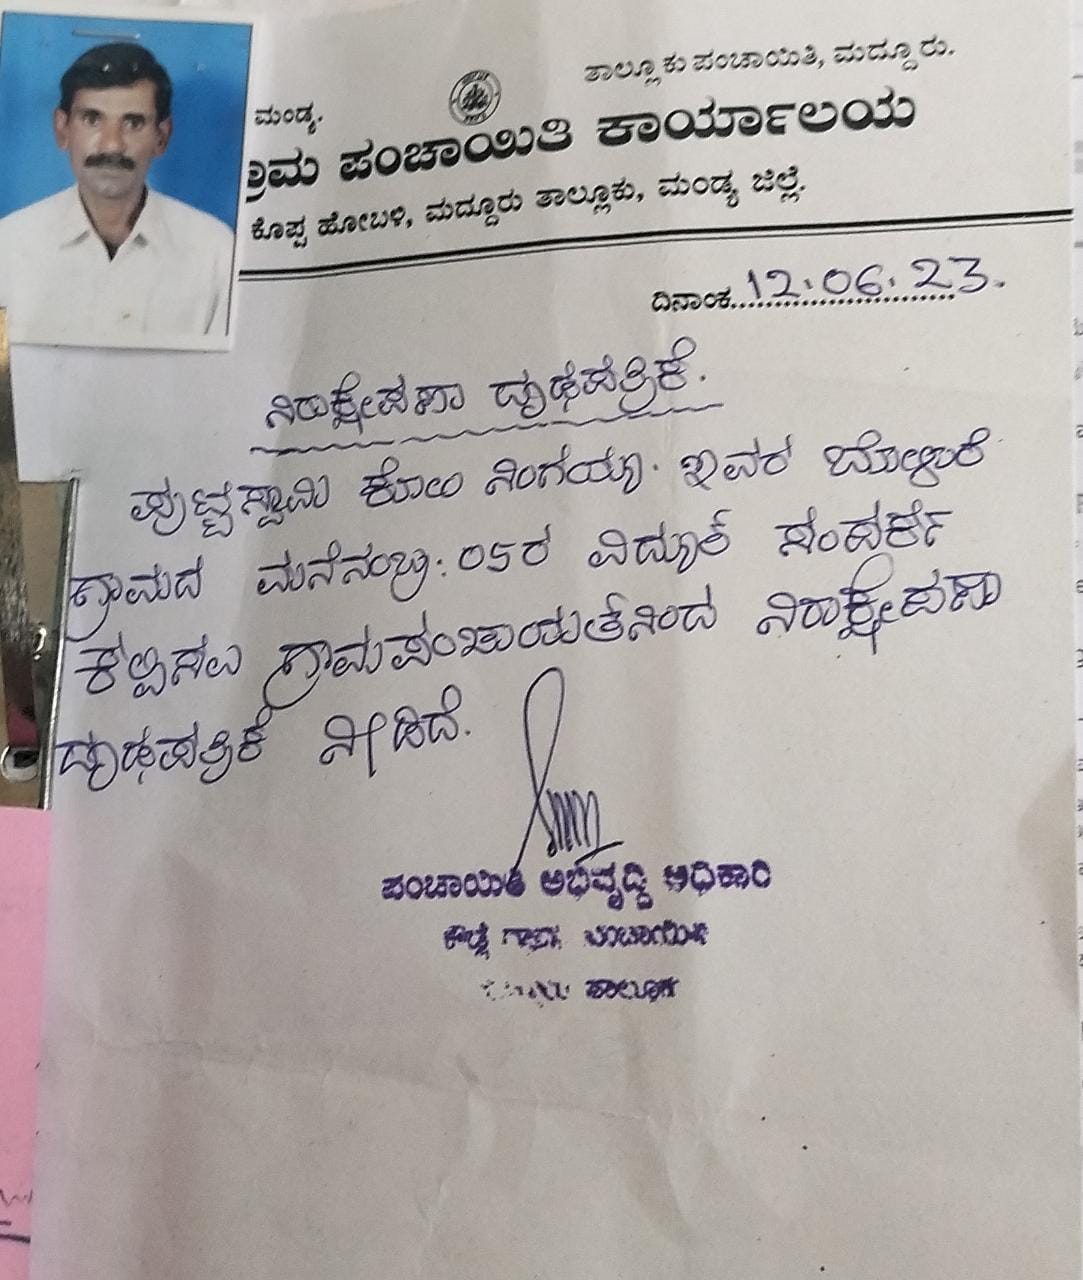 ತಾಲ್ಲೂಕು ಪಂಚಾಯಿತಿ, ಮದ್ದೂರು.
ಮಂಡ್ಯ.
ಗ್ರಾಮ ಪಂಚಾಯಿತಿ ಕಾರ್ಯಾಲಯ
ಕೊಪ್ಪ ಹೋಬಳಿ, ಮದ್ದೂರು ತಾಲ್ಲೂಕು, ಮಂಡ್ಯ ಜಿಲ್ಲೆ.
ದಿನಾಂಕ 12.06.23.
ನಿರಾಕ್ಷೇಪಣಾ ದೃಢಪತ್ರಿಕೆ.
ಪುಟ್ಟಸ್ವಾಮಿ ಕೋಂ ನಿಂಗಯ್ಯ. ಇವರ
ಗ್ರಾಮದ ಮನೆನಂಬ್ರ: 05ರ ವಿದ್ಯುತ್ ಸಂಪರ್ಕ
ಕಲ್ಪಿಸಲು ಗ್ರಾಮಪಂಚಾಯತ್‌ನಿಂದ ನಿರಾಕ್ಷೇಪಣಾ
ದೃಢಪತ್ರಿಕೆ ನೀಡಿದೆ.
ಪಂಚಾಯಿತಿ ಅಭಿವೃದ್ಧಿ ಅಧಿಕಾರಿ
ಪಂಚಾಯಿತಿ
ತಾಲ್ಲೂಕು